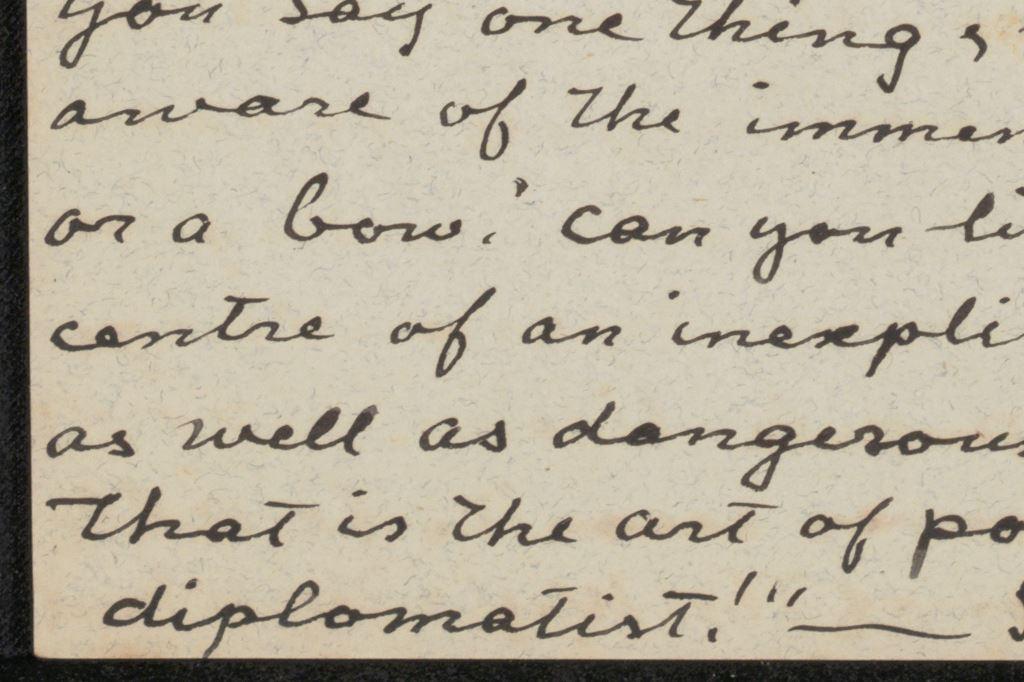 you say one thing &
aware of the immen
or a bow.' can you li
centre of an inexpli
as well as dangerous
That is the art of po
diplomatist.'" —